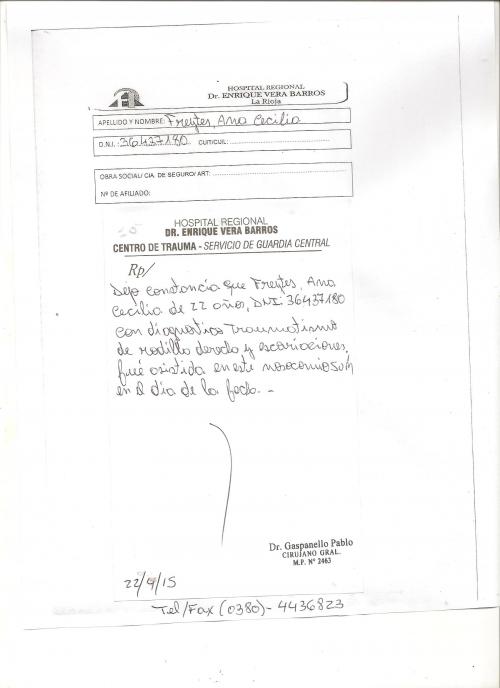 HOSPITAL REGIONAL
Dr. ENRIQUE VERA BARROS
La Rioja
APELLIDO Y NOMBRE: Freytes, Ana Cecilia
D.N.I.: 36437180 CUIT/CUIL:
OBRA SOCIAL/ CIA. DE SEGURO/ ART:
Nº DE AFILIADO:
HOSPITAL REGIONAL
DR. ENRIQUE VERA BARROS
CENTRO DE TRAUMA - SERVICIO DE GUARDIA CENTRAL
Rp/
Dejo constancia que Freytes, Ana
Cecilia de 22 años, DNI: 36437180
con diagnostico Traumatismo
de rodilla derecha y escoriaciones,
fué asistida en este nosocomio
en el dia de la fecha. -
Dr. Gaspanello Pablo
CIRUJANO GRAL.
M.P. Nº 2463
22/4/15
Tel/Fax (0380)- 4436823